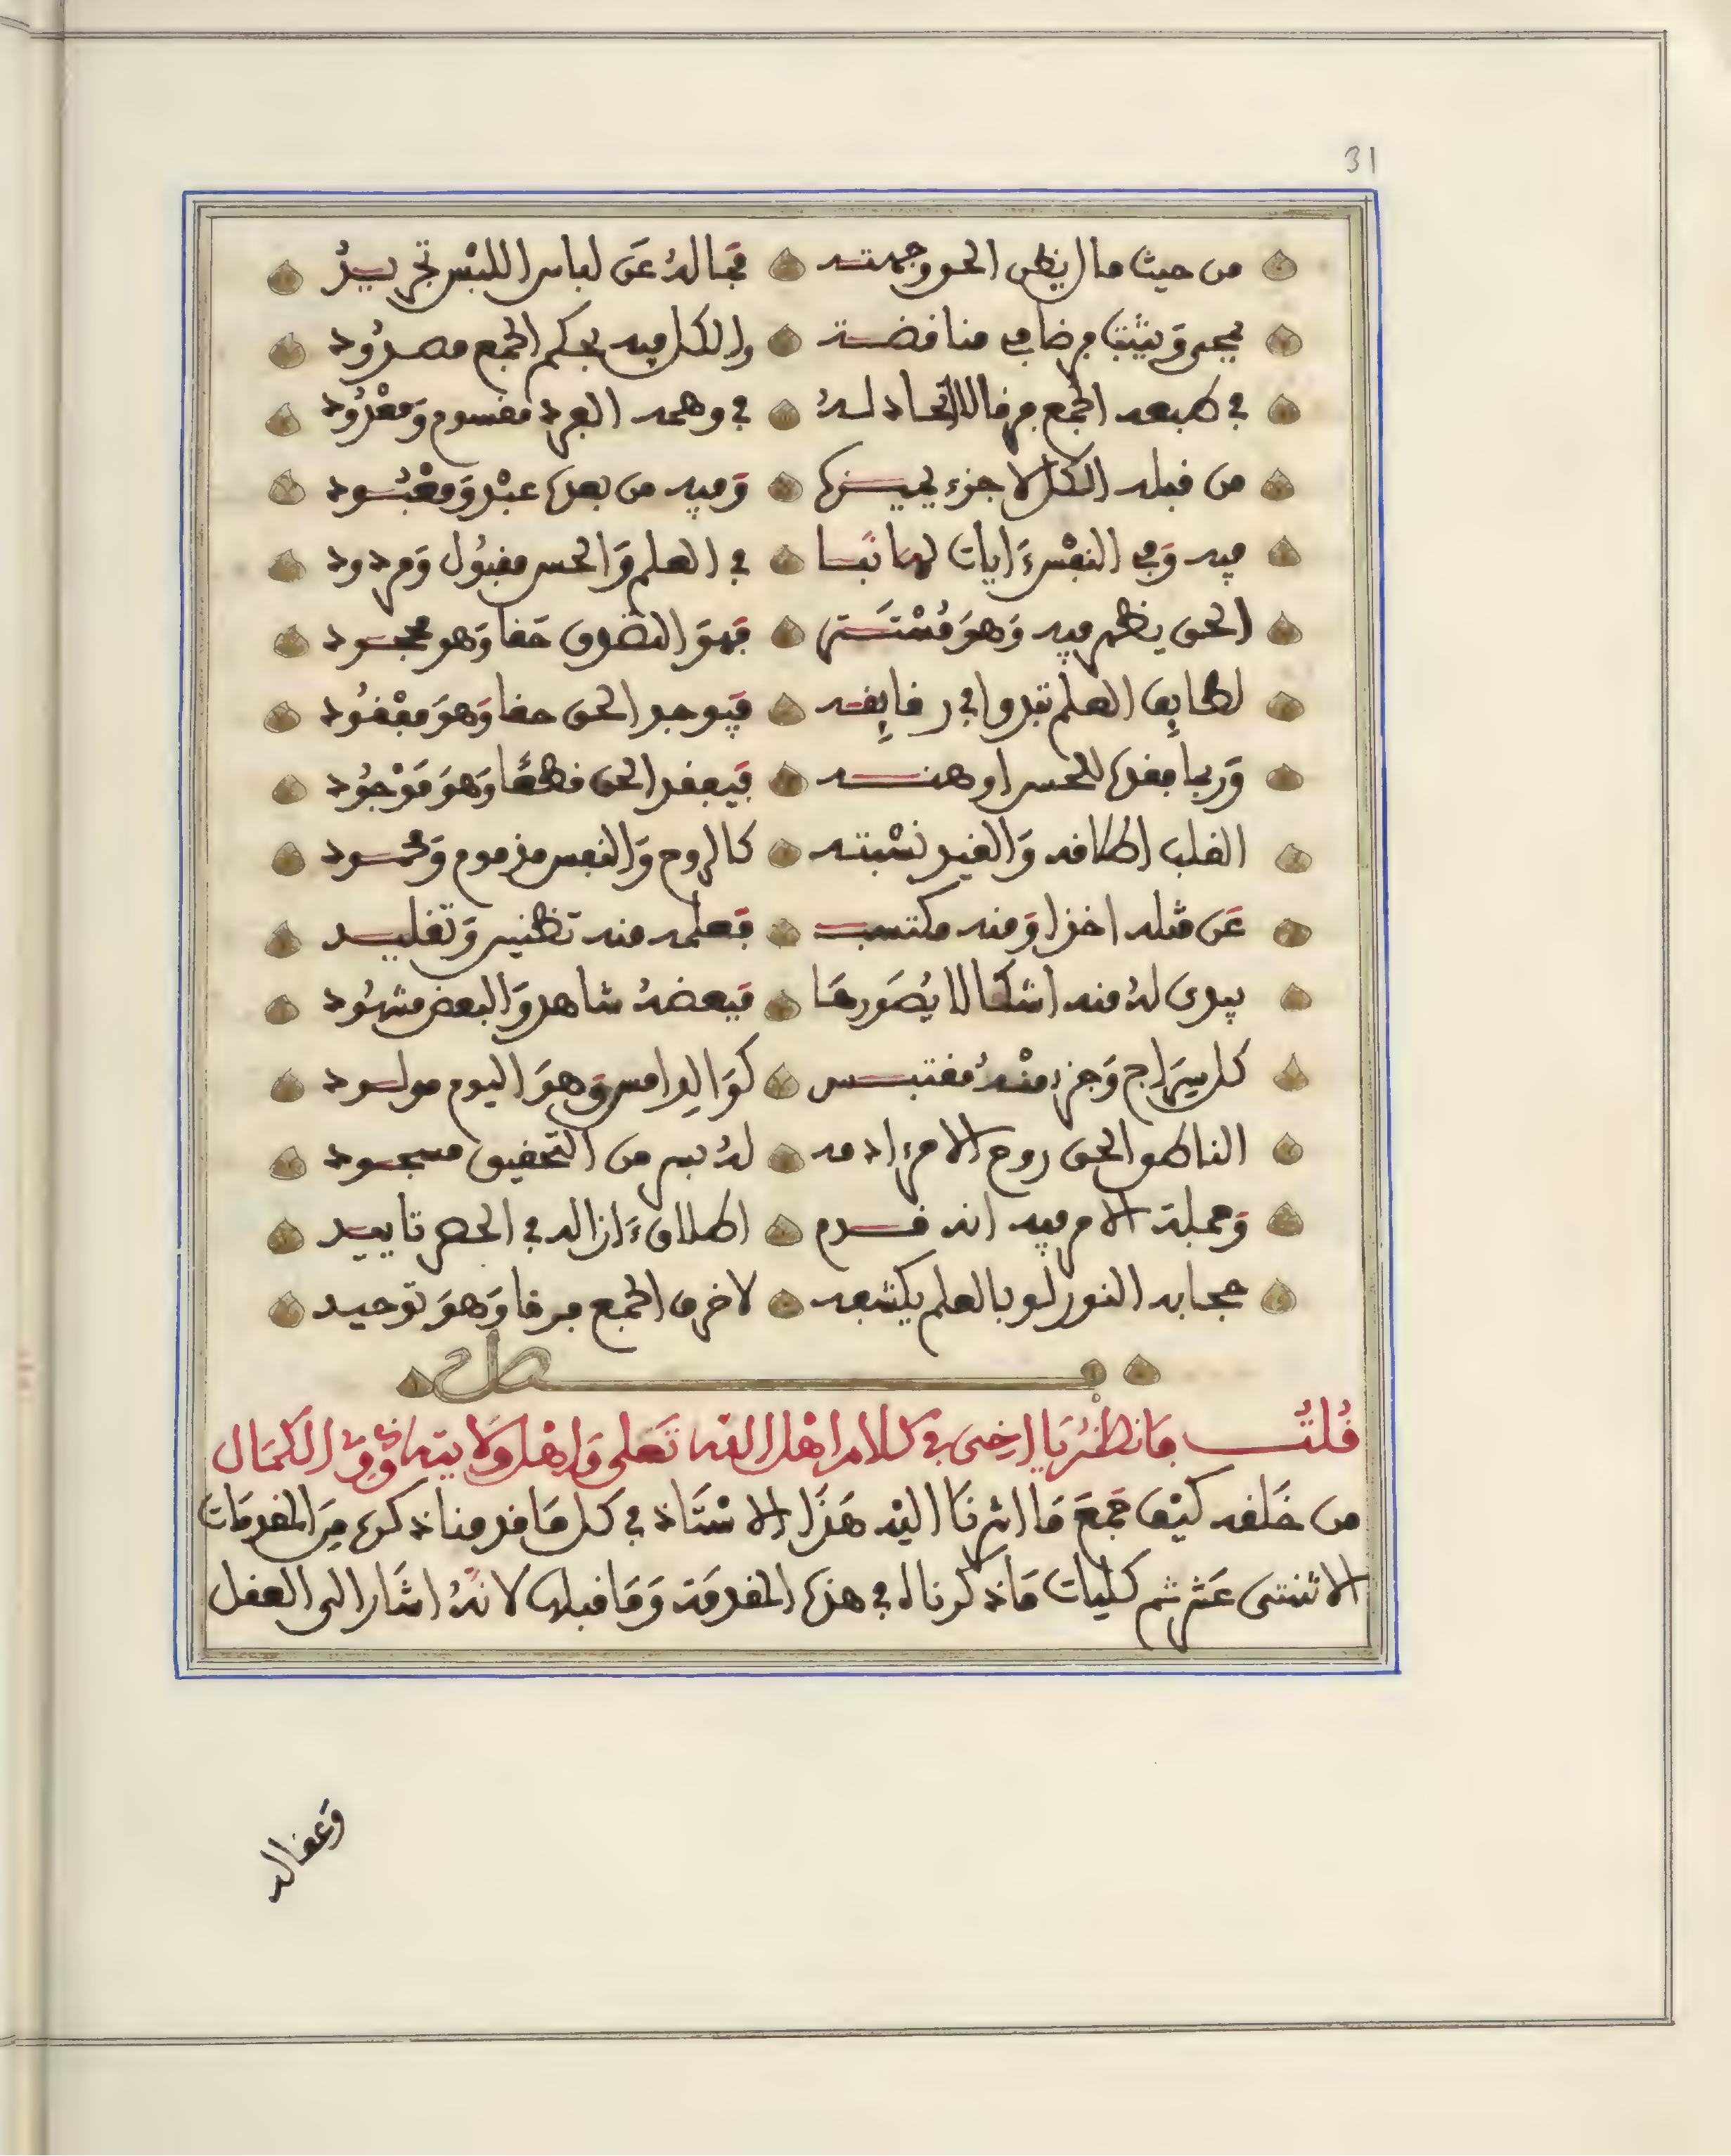 31
من حيث مال يظن الحق وجهته فماله عن لباس اللبس تجريد
يمحى ويثبت مرضا في مناقضة والكل فيه بحكم الجمع مصرود
في طبعه الجمع فرقا لا اتحاد له في وهمه الفرد مقسوم ومعدود
من قبله الكل لا جزء يميزه وفيه من بعده عبد ومعبود
فيه وفي النفس ءايات لها نبا في العلم والحس مقبول ومردود
الحق يظهر فيه وهو مستتر فهو النضوى حقا وهو مجحود
لطايف العلم تبدوا في رقايقه فيوجد الحق حقا وهو مفقود
وربما فقده للحس اوهنه فيفقد الحق قطعا وهو موجود
القلب اطلاقه والقيد نسبته كالروح والنفس مذموم ومحمود
عن مثله اخذا ومنه مكتسب فعلمه منه تظنين وتقليد
يبدى له منه اشكالا يصورها فبعضه شاهد والبعض مشهود
كل سراج وجزء منه مقتبس كوالد امس وهو اليوم مولود
الناطق الحق روح الامر ءادمه له بسر من التحقيق مسجود
وجملة الامر فيه انه قدم اطلاق ءازاله في الحصر تاييد
حجابه النور لو بالعلم يكشفه لاخرق الجمع فرقا وهو توحيد
فصل
قلت فانظر يا اخي في كلام اهل الله تعلى واهل ولايته ذوى الكمال
من خلقه كيف جمع ما اشرنا اليه هذا الاستاذ في كل ما قدمنا ذكره من المقدمات
الاثنتى عشر ثم كليات ما ذكرناه في هذه المقدمة وما قبلها لانه اشار الى العقل
وعقاله